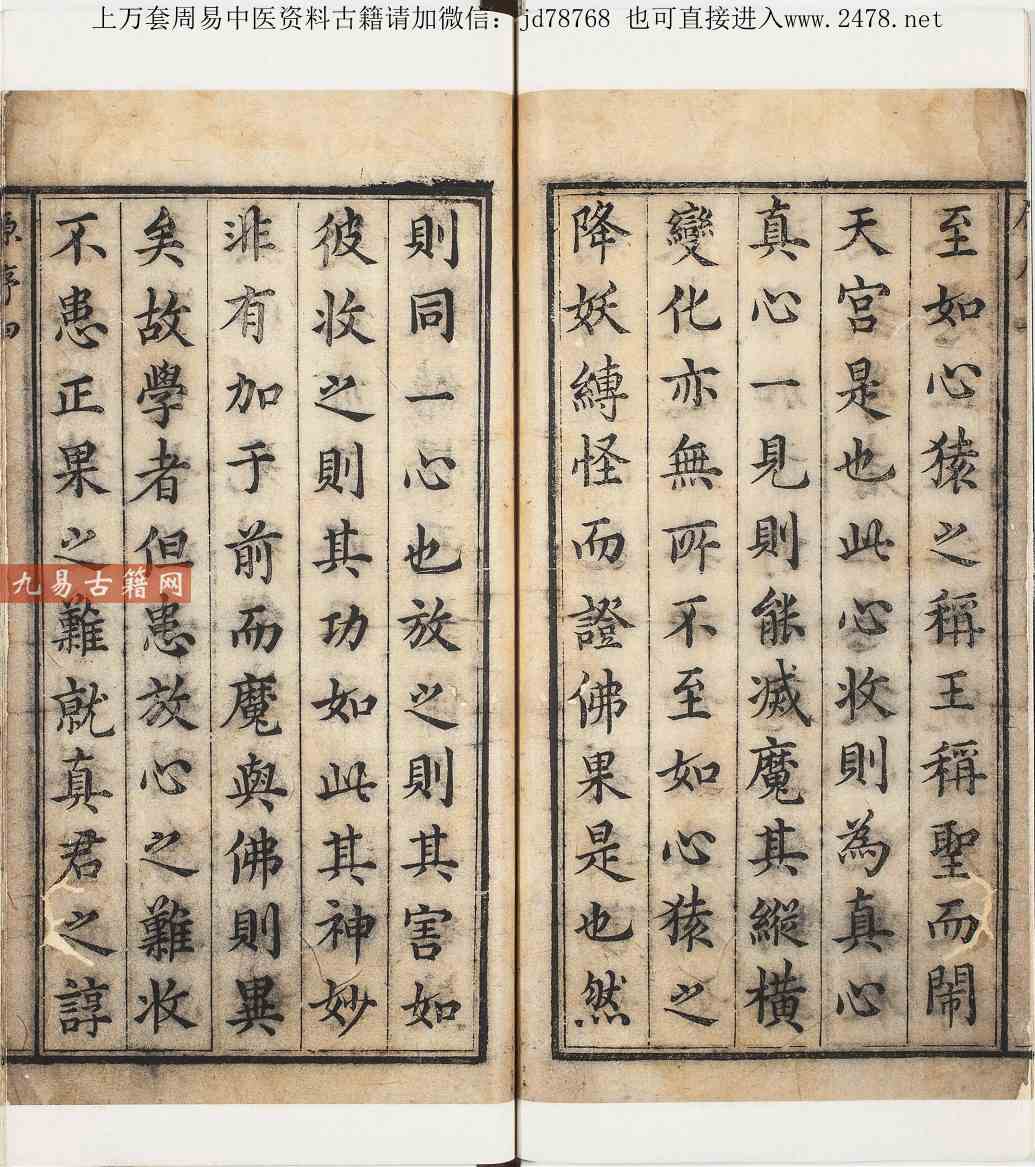 上万套周易中医资料古籍请加微信：jd78768 也可直接进入www.2478.net
至如心猿之稱王稱聖而鬧
天宮是也此心收則為真心
真心一見則能滅魔其縱横
變化亦無所不至如心猿之
降妖縛怪而證佛果是也然
則同一心也放之則其害如
彼收之則其功如此其神妙
非有加于前而魔與佛則異
矣故學者但患放心之難收
不患正果之難就真君之諄
序四
九易古籍网